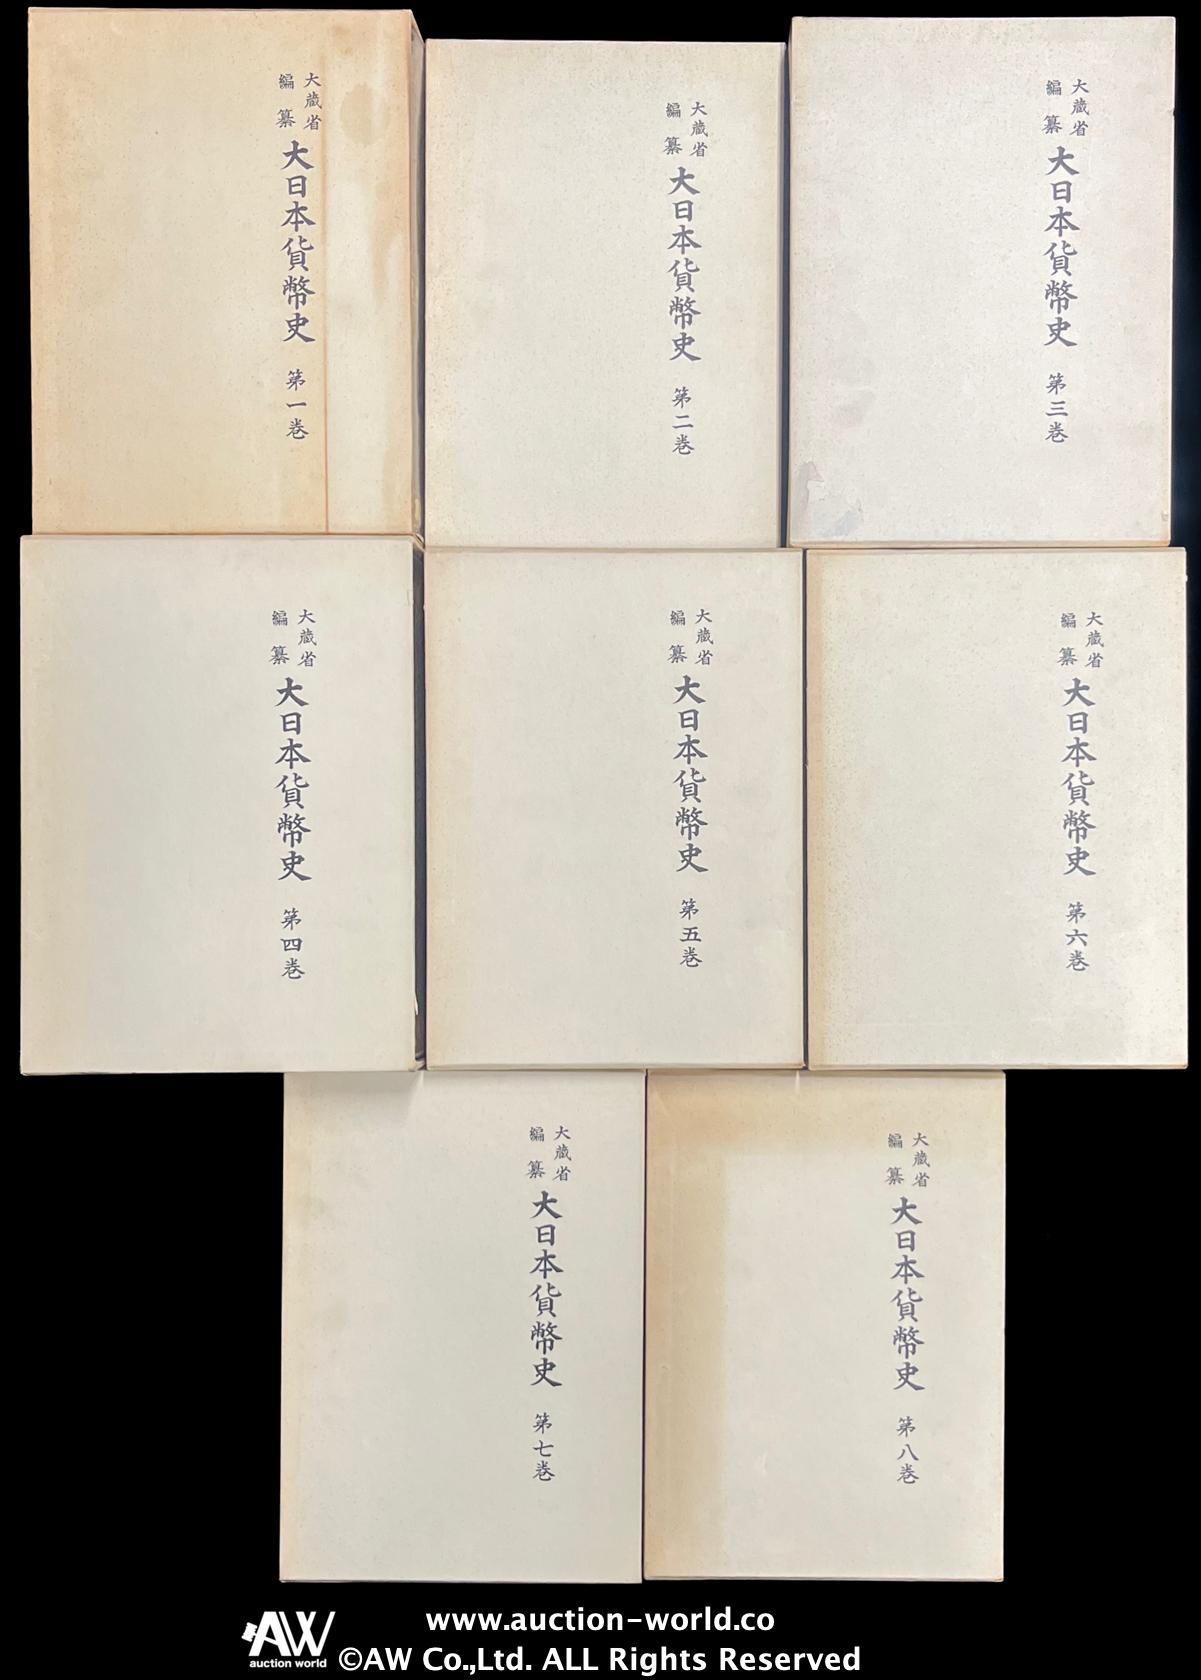 大蔵省
編纂
大日本貨幣史 第一巻
大蔵省
編纂
大日本貨幣史 第二巻
大蔵省
編纂
大日本貨幣史 第三巻
大蔵省
編纂
大日本貨幣史 第四巻
大蔵省
編纂
大日本貨幣史 第五巻
大蔵省
編纂
大日本貨幣史 第六巻
大蔵省
編纂
大日本貨幣史 第七巻
大蔵省
編纂
大日本貨幣史 第八巻
AW
auction world
www.auction-world.co
©AW Co.,Ltd. ALL Rights Reserved